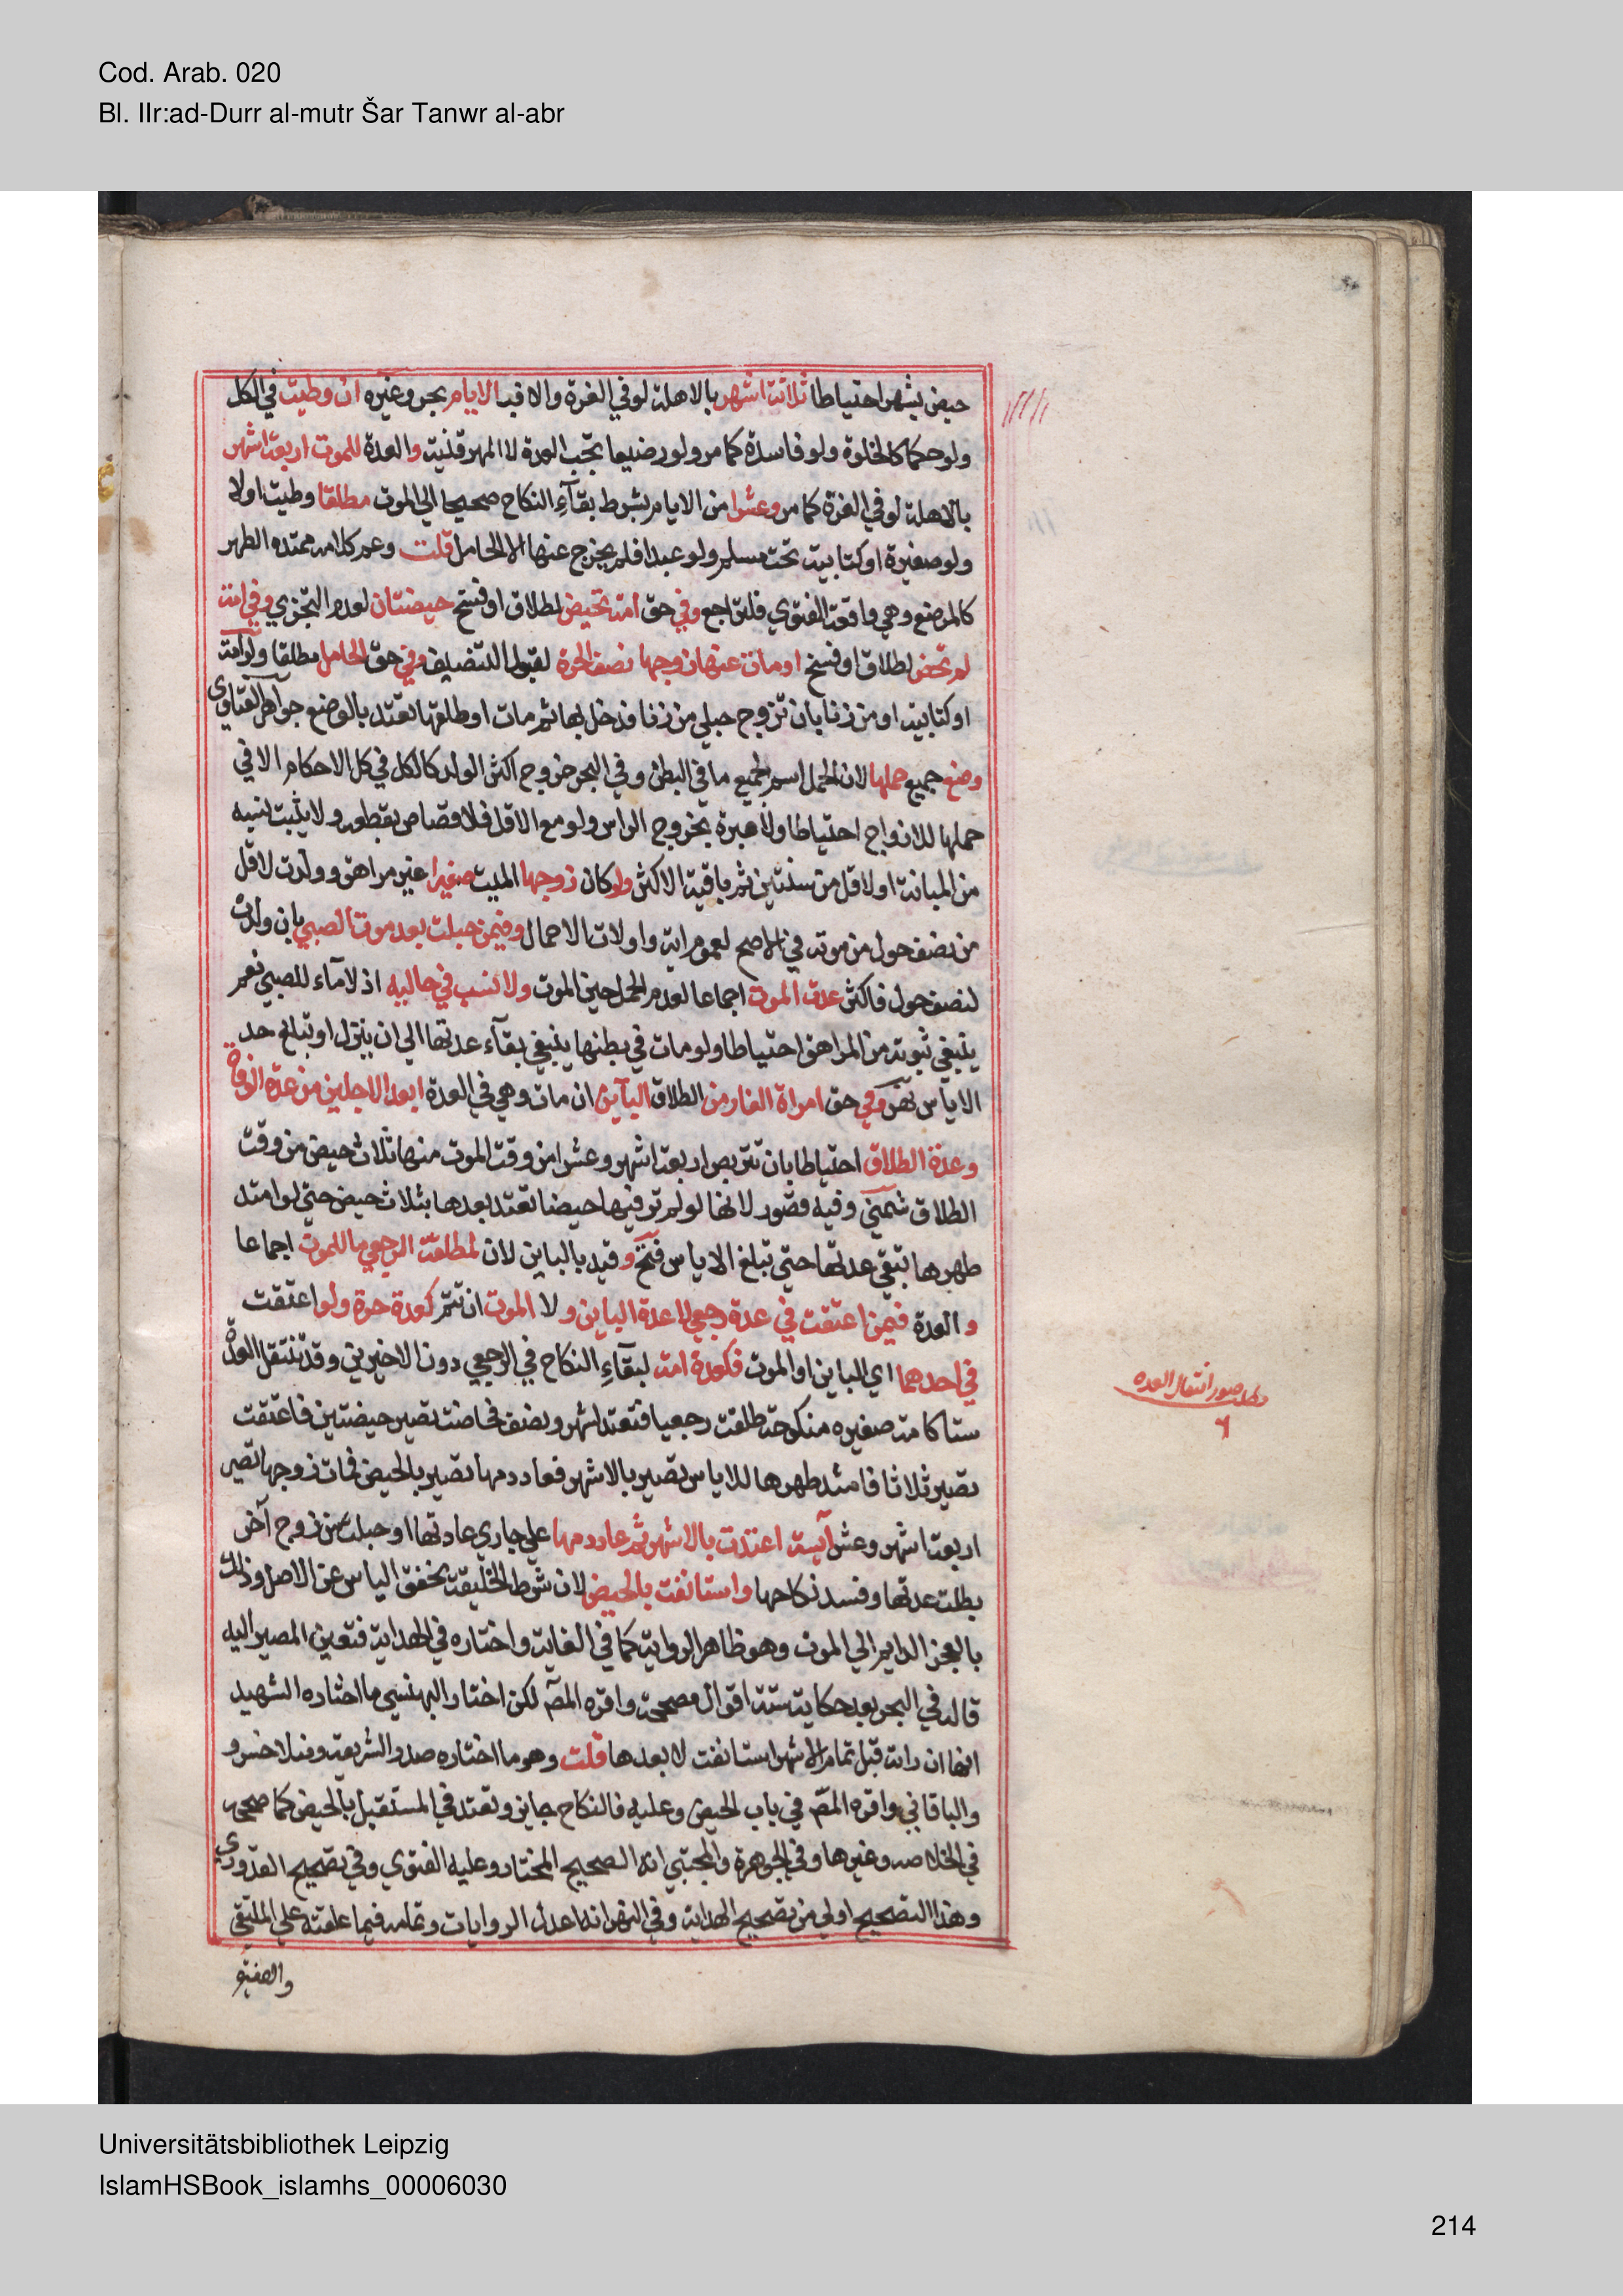 Cod. Arab. 020
Bl. IIr:ad-Durr al-mutr Šar Tanwr al-abr
حيض بشهر احتياطا ثلاثة اشهر بالاهلة لو في الغرة والا فبالايام بحر وغيره ان وطيت في الكل
ولو حكما كالخلوة ولو فاسدة كما مر ولو رضيعا تجب العدة لا المهر قنية والعدة للموت اربعة اشهر
بالاهلة لو في الغرة كما مر وعشرا من الايام بشرط بقآء النكاح صحيحا الي الموت مطلقا وطيت اولا
ولو صغيرة او كتابية تحت مسلم ولو عبدا فلم يخرج عنها الا الحامل قلت وعم كلامه ممتده الطهر
كالمرضع وهي واقعة الفتوي فلتراجع وفي حق امة تحيض لطلاق او فسخ حيضتان لعدم التجزي وفي امة
لم تحض لطلاق او فسخ او مات عنها زوجها نصف الحرة لقبول التنصيف وفي حق الحامل مطلقا ولو امة
او كتابية او من زنا بان تزوج حبلي من زنا فدخل بها ثم مات او طلقها تعتد بالوضع جواهر الفتاوي
وضع جميع حملها لان الحمل اسم لجميع ما في البطن وفي البحر خروج اكثر الولد كالكل في كل الاحكام الا في
حملها للازواج احتياطا ولا عبرة بخروج الراس ولو مع الاقل فلا قصاص بقطعه ولا يثبت نسبه
من المبانة او لاقل من سنتين ثم باقية الاكثر ولو كان زوجها الميت صغيرا غير مراهق وولدت لاقل
من نصف حول من موته في الاصح لعموم اية واولات الاحمال وفيمن حبلت بعد موت الصبي بان ولدت
لنصف حول فاكثر عدة الموت اجماعا لعدم الحمل حين الموت ولا نسب في حاليه اذ لا مآء للصبي نعم
ينبغي ثبوته من المراهق احتياطا ولو مات في بطنها ينبغي بقآء عدتها الي ان ينزل او تبلغ حد
الاياس نهر وفي حق امراة الفار من الطلاق الباين ان مات وهي في العدة ابعد الاجلين من عدة الوفاة
وعدة الطلاق احتياطا بان تتربص اربعة اشهر وعشرا من وقت الموت منها ثلاث حيض من وقت
الطلاق شمني وفيه قصور لانها لو لم تر فيها حيضا تعتد بعدها بثلاث حيض حتي لو امتد
طهرها تبقي عدتها حتي تبلغ الاياس فتح وقيد بالباين لان لمطلقة الرجعي ما للموت اجماعا
والعدة فيمن اعتقت في عدة رجعي لا عدة الباين ولا الموت ان تتم كعدة حرة ولو اعتقت
في احدهما اي الباين او الموت فكعدة امة لبقآء النكاح في الرجعي دون الاخيرين وقد تنتقل العدة
ستا كامة صغيره منكوحة طلقت رجعيا فتعتد شهر ونصف فحاضت تصير حيضتين فاعتقت
تصير ثلاثا فامتد طهرها للاياس تصير بالاشهر فعاد دمها تصير بالحيض فمات زوجها تصير
اربعة اشهر وعشر آيسة اعتدت بالاشهر ثم عاد دمها علي جاري عادتها او حبلت من زوج آخر
بطلت عدتها وفسد نكاحها واستانفت بالحيض لان شرط الخليقة تحقق الياس عن الاصل وذلك
بالعجز الدايم الي الموت وهو ظاهر الرواية كما في الغاية واختاره في الهداية فتعين المصير اليه
قاله في البحر بعد حكاية ستة اقوال مصححة واقره المصـ لكن اختار البهنسي ما اختاره الشهيد
انها ان راته قبل تمام الاشهر استانفت لا بعدها قلت وهو ما اختاره صدر الشريعة ومنلا خسرو
والباقاني واقره المصـ في باب الحيض وعليه فالنكاح جايز وتعتد في المستقبل بالحيض كما صححه
في الخلاصه وغيرها وفي الجوهرة والمجتبي انه الصحيح المختار وعليه الفتوي وفي تصحيح القدوري
وهذا التصحيح اولي من تصحيح الهداية وفي النهر انه اعدل الروايات وتمامه فيما علقته علي الملتقي
والصغيرة
مطلب صور انتقال العده
٦
Universitätsbibliothek Leipzig
IslamHSBook_islamhs_00006030
214